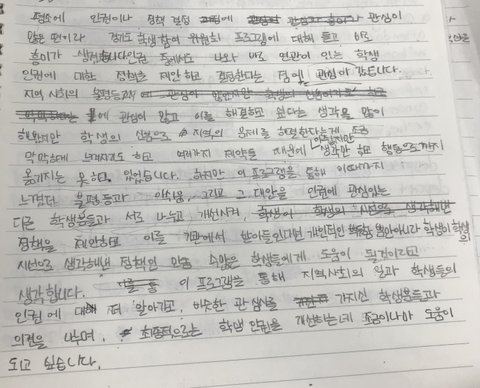 평소에 인권이나 정책 결정에 관심이
많은 편이라 경기도 학생참여 위원회 프로그램에 대해 듣고 바로
흥미가 생겼습니다 인권 중에서도 나와 바로 연관이 있는 학생
인권에 대한 정책을 제안하고 결정한다는 점에 관심이 갔습니다.
지역 사회의
에 관심이 많고 이를 해결하고 싶다는 생각을 많이
해왔지만 학생의 신분으로 지역의 문제를 해결한다는게 조금
막막하게 느껴지기도 하고 여러가지 제약들 때문에 생각만 하고 행동으로까지
옮기지는 못하고 있었습니다. 하지만 이 프로그램을 통해 이때까지
느꼈던 불편함과 그리고 그 대안을 인권에 관심있는
다른 학생분들과 서로 나누고 개선시켜,
정책을 제안하고 이를 기관에서 받아들인다면 개인적인 뿐만아니라 학생이 학생의
시선으로 생각해낸 정책인 만큼 수많은 학생들에게 도움이 될것이라고
생각합니다. 이 프로그램을 통해 지역사회의 일과 학생들의
인권에 대해 더 알아가고, 비슷한 관심사를 가지신 학생분들과
의견을 나누며, 최종적으로는 학생 인권을 개선하는데 조금이나마 도움이
되고 싶습니다.